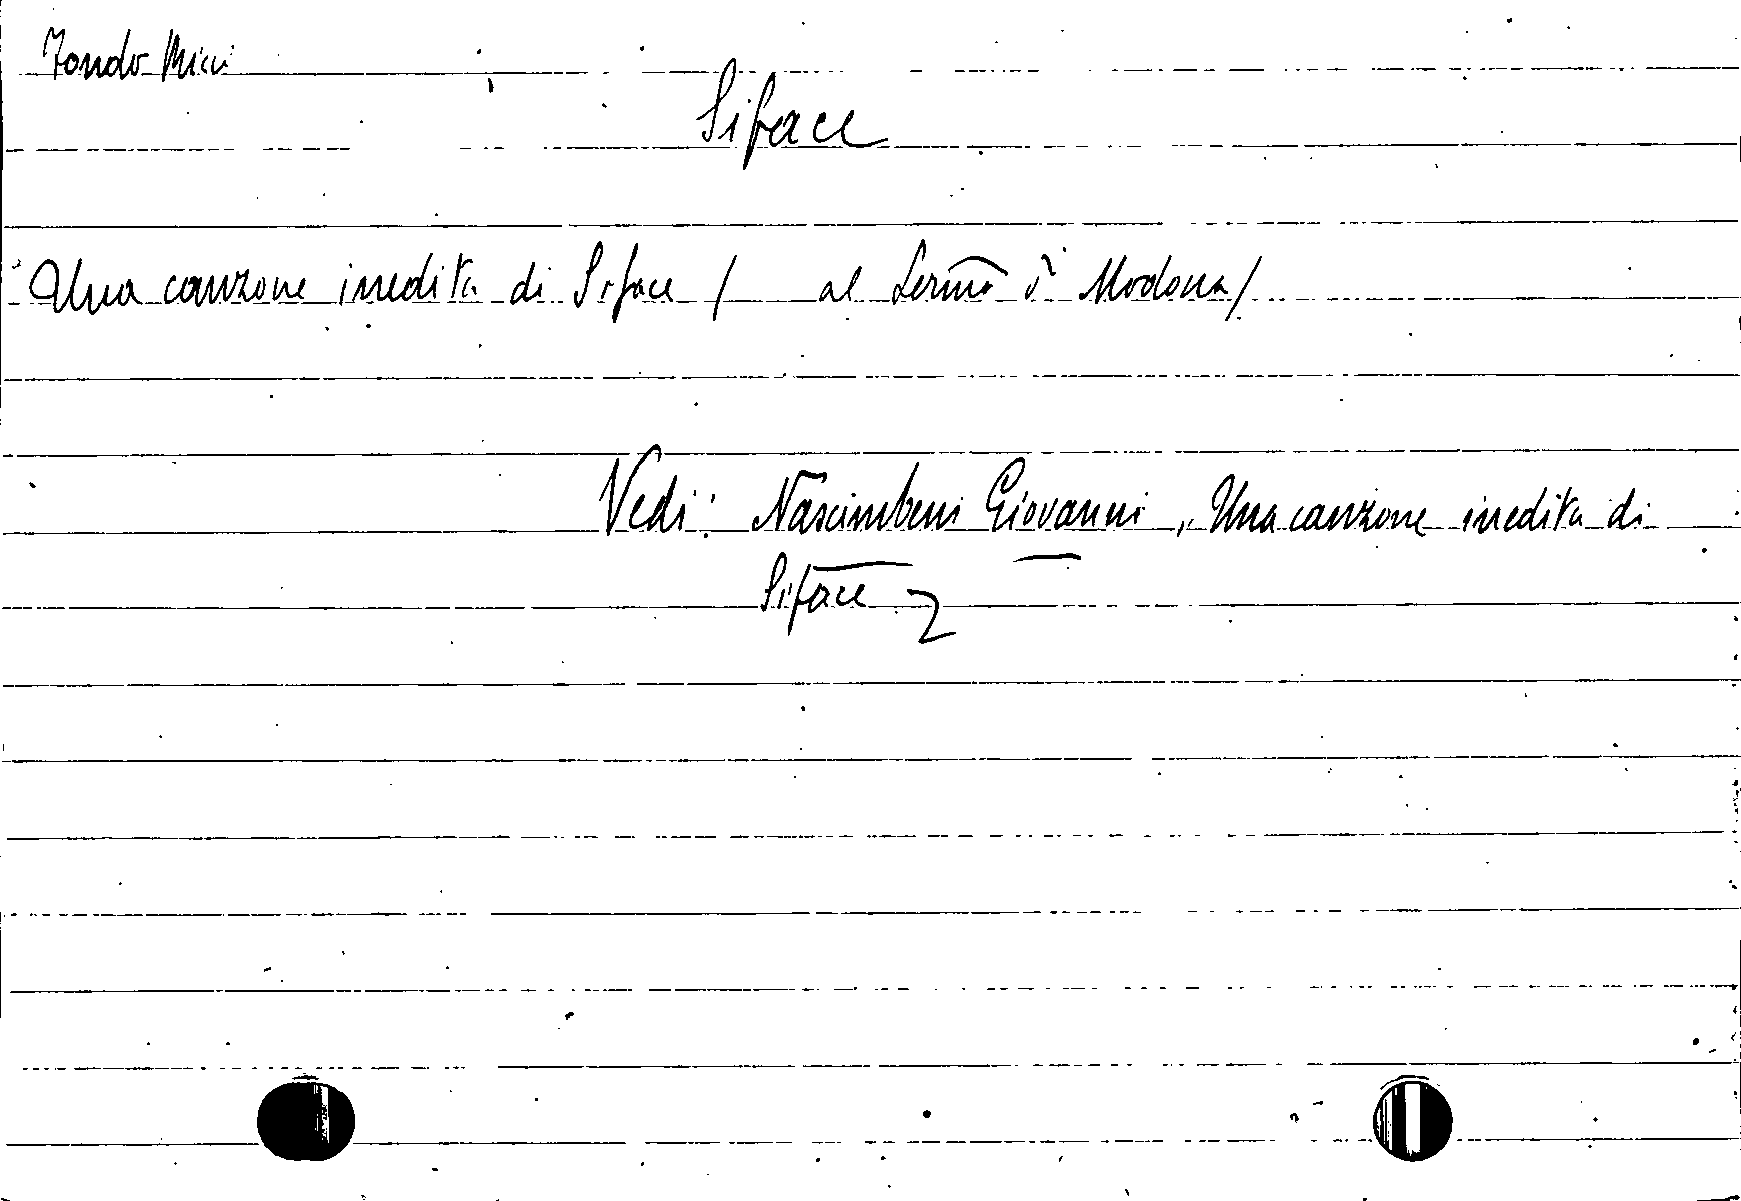 Fondo Miari
Siface
Una canzone inedita di Siface / al Sermō d' Modona /
Vedi: Nascimbeni Giovanni, Una canzone inedita di
Siface